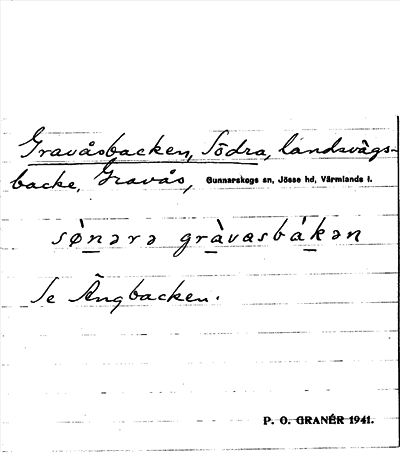 Gravåsbacken, Södra, landsvägs-
backe, Gravås, Gunnarskogs sn, Jösse hd, Värmlands l.
sø̀nərə gràvasbákən
Se Ängbacken.
P. O. GRANÉR 1941.